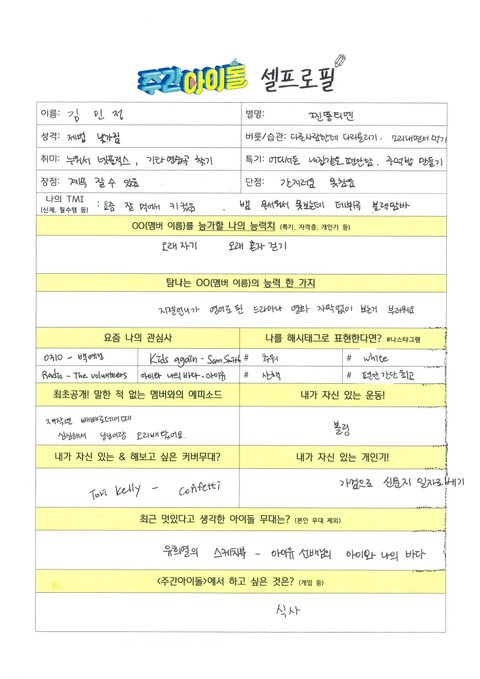 주간아이돌 셀프로필
이름: 김 민 정
별명: 찐똥티맨
성격: 제법 낯가림
버릇/습관: 다른사람한테 다리올리기. 소리내면서 먹기
취미: 누워서 넷플릭스, 기타연습곡 찾기
특기: 어디서든 내집처럼 편안함. 주먹밥 만들기
장점: 계속 잘 수 있음
단점: 간지러움 못참음
나의 TMI : 요즘 잘 먹어서 키컸음. 뱀 무서워서 못보는데 테뷔곡 블랙맘바
(신체, 필수템 등)
OO(멤버 이름)를 능가할 나의 능력치 (특기, 자격증, 개인기 등)
오래 자기 오래 혼자 걷기
탐나는 OO(멤버 이름)의 능력 한 가지
지젤언니가 영어로 된 드라마나 영화 자막없이 보는게 부러워요
요즘 나의 관심사
나를 해시태그로 표현한다면? #나스타그램
0310 - 백예린
Kids again - Sam Smith
# 추위
# White
Radio - The volunteers
아이와 나의 바다 - 아이유
# 산책
# 편안 간단 최고
최초공개! 말한 적 없는 멤버와의 에피소드
내가 자신 있는 운동!
재작년 빼빼로데이때
심심해서 닝닝이랑 오리배 탔어요.
볼링
내가 자신 있는 & 해보고 싶은 커버무대?
내가 자신 있는 개인기!
Tori Kelly - Confetti
가검으로 신문지 일자로 베기
최근 멋있다고 생각한 아이돌 무대는? (본인 무대 제외)
유희열의 스케치북 - 아이유 선배님의 아이와 나의 바다
<주간아이돌>에서 하고 싶은 것은? (게임 등)
식사